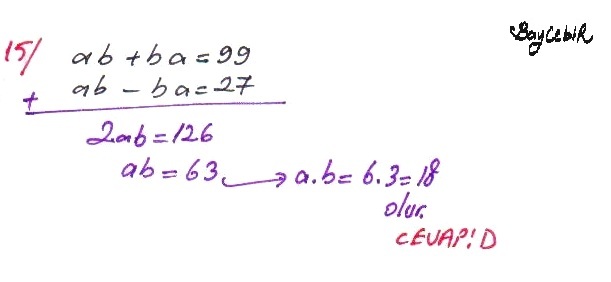 BayCebiR
15/ ab + ba = 99
+ ab - ba = 27
2ab = 126
ab = 63 → a.b = 6.3 = 18
olur.
CEVAP! D